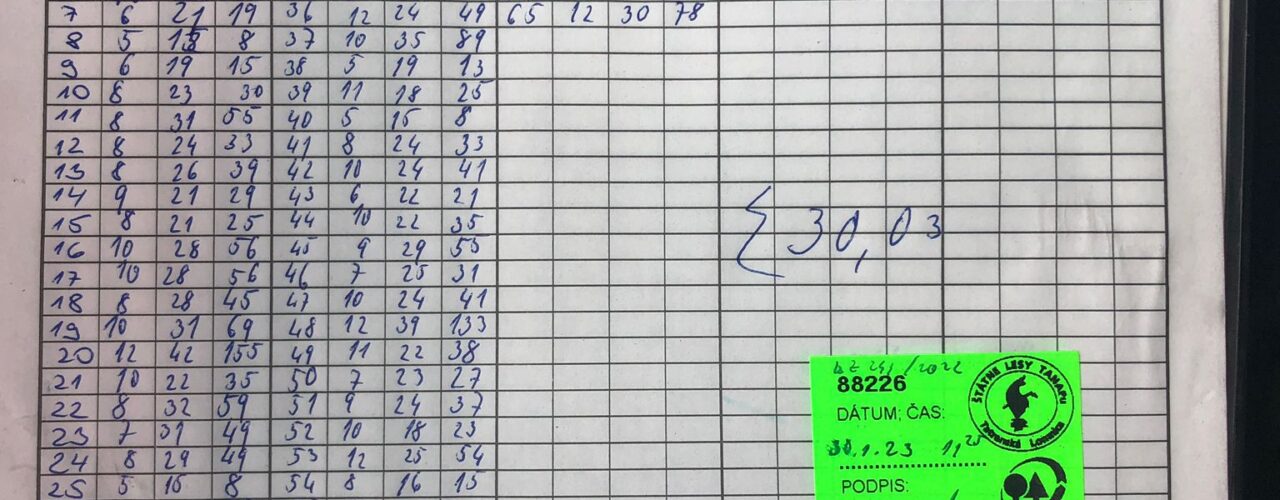 7 6 21 19 36 12 24 49 65 12 30 78
8 5 8 37 10 35 89
9 6 19 15 38 5 19 13
10 8 23 30 39 11 18 25
11 8 31 55 40 5 15 8
12 8 24 33 41 8 24 33
13 8 26 39 42 10 24 41
14 9 21 29 43 6 22 21
15 8 21 25 44 10 22 35
16 10 28 56 45 9 29 55
17 10 28 56 46 7 25 31
18 8 28 45 47 10 24 41
19 10 31 69 48 12 39 133
20 12 42 155 49 11 22 38
21 10 22 35 50 7 23 27
22 8 32 59 51 9 24 37
23 7 31 49 52 10 18 23
24 8 29 49 53 12 25 54
25 5 15 8 54 8 16 15
30,03
88226
ŠTÁTNE LESY TANAPu
Tatranská Lomnica
DÁTUM, ČAS:
30.1.23 11 25
PODPIS: